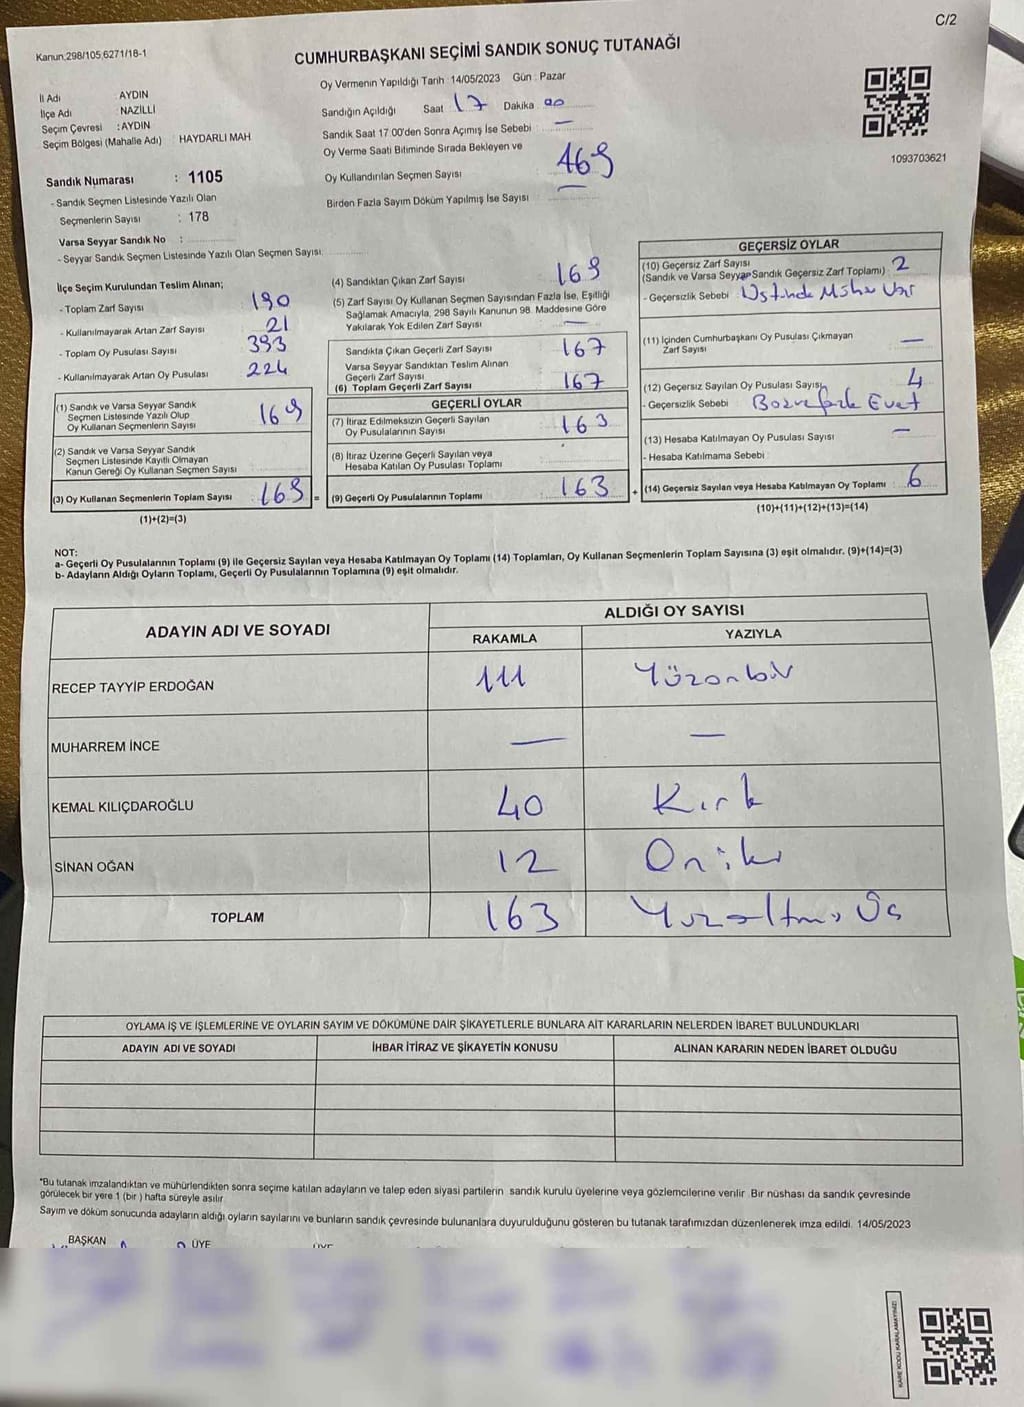 C/2
Kanun.298/105.6271/18-1
CUMHURBAŞKANI SEÇİMİ SANDIK SONUÇ TUTANAĞI
Oy Vermenin Yapıldığı Tarih 14/05/2023 Gün : Pazar
İl Adı : AYDIN
İlçe Adı : NAZİLLİ
Seçim Çevresi : AYDIN
Seçim Bölgesi (Mahalle Adı) : HAYDARLI MAH
Sandığın Açıldığı Saat 17 Dakika 00
Sandık Saat 17 00'den Sonra Açımış İse Sebebi : —
Oy Verme Saati Bitiminde Sırada Bekleyen ve
Oy Kullandırılan Seçmen Sayısı 169
Birden Fazla Sayım Döküm Yapılmış İse Sayısı —
1093703621
Sandık Numarası : 1105
- Sandık Seçmen Listesinde Yazılı Olan
Seçmenlerin Sayısı : 178
Varsa Seyyar Sandık No :
- Seyyar Sandık Seçmen Listesinde Yazılı Olan Seçmen Sayısı
İlçe Seçim Kurulundan Teslim Alınan;
- Toplam Zarf Sayısı 190
- Kullanılmayarak Artan Zarf Sayısı 21
- Toplam Oy Pusulası Sayısı 393
- Kullanılmayarak Artan Oy Pusulası 224
(1) Sandık ve Varsa Seyyar Sandık
Seçmen Listesinde Yazılı Olup
Oy Kullanan Seçmenlerin Sayısı 169
(2) Sandık ve Varsa Seyyar Sandık
Seçmen Listesinde Kayıtlı Olmayan
Kanun Gereği Oy Kullanan Seçmen Sayısı
(3) Oy Kullanan Seçmenlerin Toplam Sayısı 169 =
(1)+(2)=(3)
(4) Sandıktan Çıkan Zarf Sayısı 169
(5) Zarf Sayısı Oy Kullanan Seçmen Sayısından Fazla İse, Eşitliği
Sağlamak Amacıyla, 298 Sayılı Kanunun 98. Maddesine Göre
Yakılarak Yok Edilen Zarf Sayısı —
Sandıkta Çıkan Geçerli Zarf Sayısı 167
Varsa Seyyar Sandıktan Teslim Alınan
Geçerli Zarf Sayısı
(6) Toplam Geçerli Zarf Sayısı 167
GEÇERLİ OYLAR
(7) İtiraz Edilmeksizin Geçerli Sayılan
Oy Pusulalarının Sayısı 163
(8) İtiraz Üzerine Geçerli Sayılan veya
Hesaba Katılan Oy Pusulası Toplamı
(9) Geçerli Oy Pusulalarının Toplamı 163 +
GEÇERSİZ OYLAR
(10) Geçersiz Zarf Sayısı
(Sandık ve Varsa Seyyar Sandık Geçersiz Zarf Toplamı) 2
- Geçersizlik Sebebi : Üstünde Mühür Var
(11) İçinden Cumhurbaşkanı Oy Pusulası Çıkmayan
Zarf Sayısı —
(12) Geçersiz Sayılan Oy Pusulası Sayısı 4
- Geçersizlik Sebebi Evet
(13) Hesaba Katılmayan Oy Pusulası Sayısı —
- Hesaba Katılmama Sebebi
(14) Geçersiz Sayılan veya Hesaba Katılmayan Oy Toplamı 6
(10)+(11)+(12)+(13)=(14)
NOT:
a- Geçerli Oy Pusulalarının Toplamı (9) ile Geçersiz Sayılan veya Hesaba Katılmayan Oy Toplamı (14) Toplamları, Oy Kullanan Seçmenlerin Toplam Sayısına (3) eşit olmalıdır. (9)+(14)=(3)
b- Adayların Aldığı Oyların Toplamı, Geçerli Oy Pusulalarının Toplamına (9) eşit olmalıdır.
ADAYIN ADI VE SOYADI
ALDIĞI OY SAYISI
RAKAMLA YAZIYLA
RECEP TAYYİP ERDOĞAN 111 Yüzonbir
MUHARREM İNCE — —
KEMAL KILIÇDAROĞLU 40 Kırk
SİNAN OĞAN 12 Oniki
TOPLAM 163 Yüzaltmış Üç
OYLAMA İŞ VE İŞLEMLERİNE VE OYLARIN SAYIM VE DÖKÜMÜNE DAİR ŞİKAYETLERLE BUNLARA AİT KARARLARIN NELERDEN İBARET BULUNDUKLARI
ADAYIN ADI VE SOYADI İHBAR İTİRAZ VE ŞİKAYETİN KONUSU ALINAN KARARIN NEDEN İBARET OLDUĞU
*Bu tutanak imzalandıktan ve mühürlendikten sonra seçime katılan adayların ve talep eden siyasi partilerin sandık kurulu üyelerine veya gözlemcilerine verilir. Bir nüshası da sandık çevresinde
görülecek bir yere 1 (bir ) hafta süreyle asılır
Sayım ve döküm sonucunda adayların aldığı oyların sayılarını ve bunların sandık çevresinde bulunanlara duyurulduğunu gösteren bu tutanak tarafımızdan düzenlenerek imza edildi. 14/05/2023
BAŞKAN ÜYE ÜYE
KARE KODU KARALAMAYINIZ!